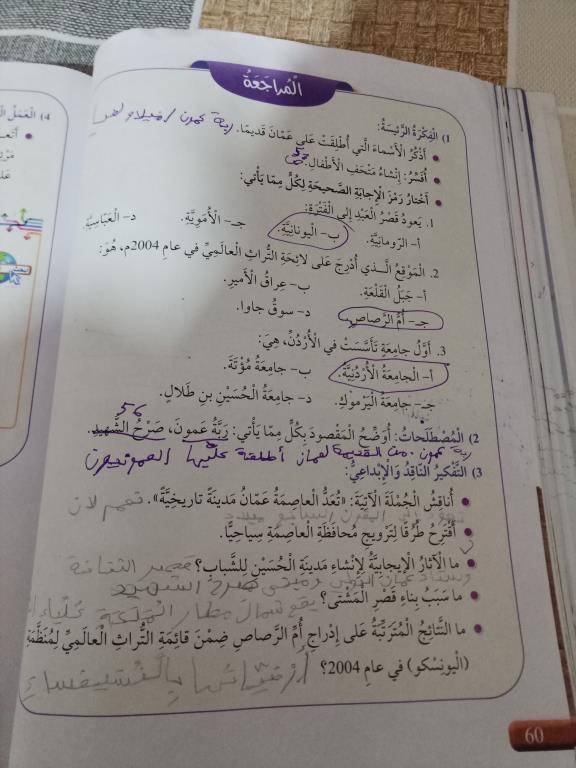 الْمُراجَعَةُ
4) الْعَمَلُ
1) الْفِكْرَةُ الرَّئيسَةُ:
• أَذْكُرُ الْأَسْماءَ الَّتي أُطْلِقَتْ عَلى عَمّانَ قَديمًا. ربة عمون
• أُفَسِّرُ: إِنْشاءُ مَتْحَفِ الْأَطْفالِ.
• أَخْتارُ رَمْزَ الْإِجابَةِ الصَّحيحَةِ لِكُلٍّ مِمّا يَأْتي:
1. يَعودُ قَصْرُ الْعَبْدِ إِلى الْفَتْرَةِ:
أ- الرّومانِيَّةِ. ب- الْيونانِيَّةِ. جـ- الْأُمَوِيَّةِ. د- الْعَبّاسِيَّةِ
2. الْمَوْقِعُ الَّذي أُدْرِجَ عَلى لائِحَةِ التُّراثِ الْعالَمِيِّ في عامِ 2004م، هُوَ:
أ- جَبَلُ الْقَلْعَةِ. ب- عِراقُ الْأَميرِ.
جـ- أُمُّ الرَّصاصِ. د- سوقُ جاوا.
3. أَوَّلُ جامِعَةٍ تَأَسَّسَتْ في الْأُرْدُنِّ، هِيَ:
أ- الْجامِعَةُ الْأُرْدُنِيَّةُ. ب- جامِعَةُ مُؤْتَةَ.
جـ- جامِعَةُ الْيَرْموكِ. د- جامِعَةُ الْحُسَيْنِ بْنِ طَلالٍ.
56
2) الْمُصْطَلَحاتُ: أُوَضِّحُ الْمَقْصودَ بِكُلٍّ مِمّا يَأْتي: رَبَّةُ عَمونَ، صَرْحُ الشَّهيدِ.
ربة عمون القديمة لعمان أطلقه عليها العمونيون
3) التَّفْكيرُ النّاقِدُ وَالْإِبْداعِيُّ:
• أُناقِشُ الْجُمْلَةَ الْآتِيَةَ: «تُعَدُّ الْعاصِمَةُ عَمّانُ مَدينَةً تاريخِيَّةً».
• أَقْتَرِحُ طُرُقًا لِتَرْويجِ مُحافَظَةِ الْعاصِمَةِ سِياحِيًّا.
• ما الْآثارُ الْإيجابِيَّةُ لِإِنْشاءِ مَدينَةِ الْحُسَيْنِ لِلشَّبابِ؟ قصر الثقافة
صرح الشهيد
• ما سَبَبُ بِناءِ قَصْرِ الْمُشَتّى؟
يقع شمال مطار الملكة علياء
• ما النَّتائِجُ الْمُتَرَتِّبَةُ عَلى إِدْراجِ أُمِّ الرَّصاصِ ضِمْنَ قائِمَةِ التُّراثِ الْعالَمِيِّ لِمُنَظَّمَةِ
(الْيونِسْكو) في عامِ 2004؟ بالفسيفساء
60